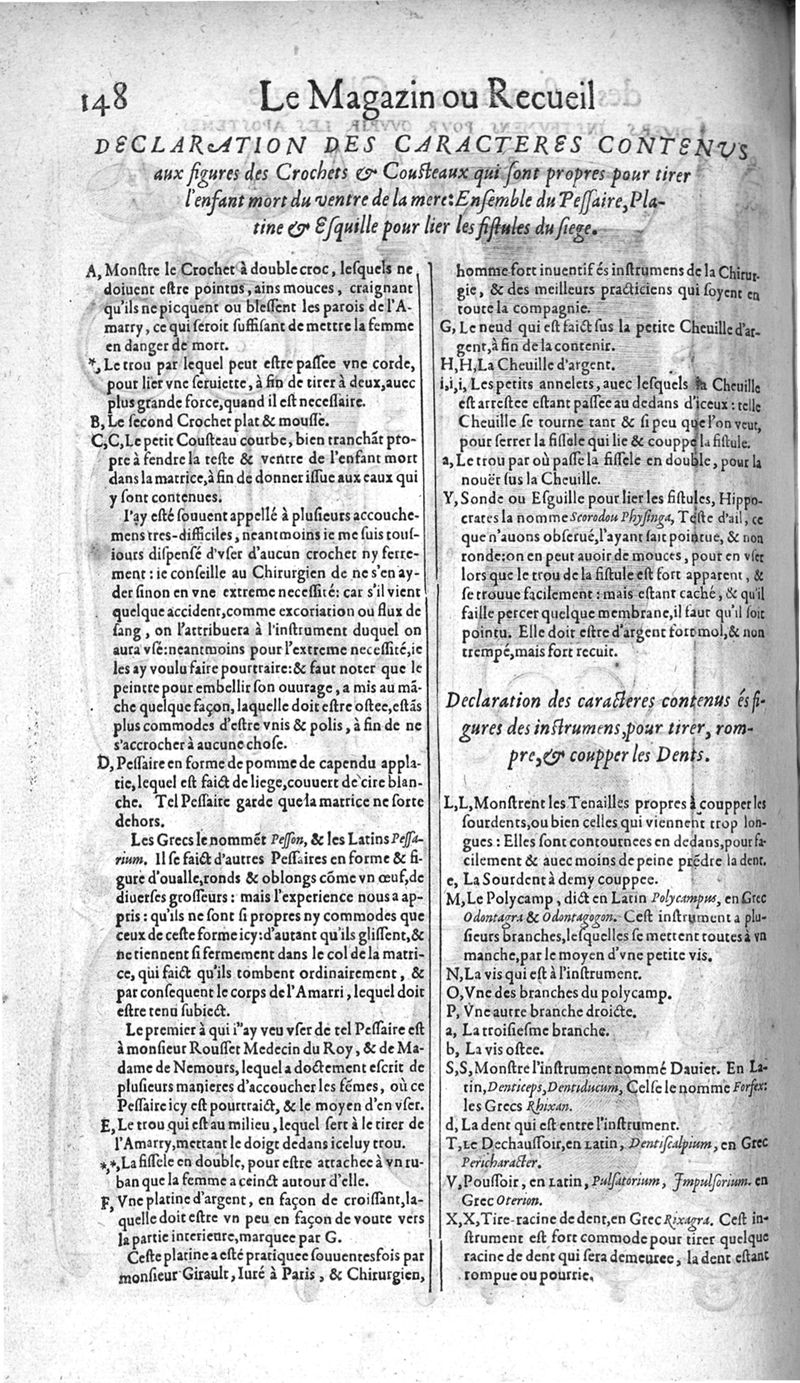 148
Le Magazin ou Recueil
DECLARATION DES CARACTERES CONTENVS
aux figures des Crochets & Couſteaux qui ſont propres pour tirer
l'enfant mort du ventre de la mere: Enſemble du Peſſaire, Pla-
tine & Eſquille pour lier les fiſtules du ſiege.
A, Monſtre le Crochet à double croc, leſquels ne
doiuent eſtre pointus, ains mouces, craignant
qu'ils ne picquent ou bleſſent les parois de l'A-
marry, ce qui ſeroit ſuffiſant de mettre la femme
en danger de mort.
*, Le trou par lequel peut eſtre paſſee vne corde,
pour lier vne ſeruiette, à fin de tirer à deux, auec
plus grande force, quand il eſt neceſſaire.
B, Le ſecond Crochet plat & mouſſe.
C, C, Le petit Couſteau courbe, bien tranchãt pro-
pre à fendre la teſte & ventre de l'enfant mort
dans la matrice, à fin de donner iſſue aux eaux qui
y ſont contenues.
I'ay eſté ſouuent appellé à pluſieurs accouche-
mens tres-difficiles, neantmoins ie me ſuis touſ-
iours diſpenſé d'vſer d'aucun crochet ny ferre-
ment: ie conſeille au Chirurgien de ne s'en ay-
der ſinon en vne extreme neceſſité: car s'il vient
quelque accident, comme excoriation ou flux de
ſang, on l'attribuera à l'inſtrument duquel on
aura vſé: neantmoins pour l'extreme neceſſité, ie
les ay voulu faire pourtraire: & faut noter que le
peintre pour embellir ſon ouurage, a mis au mã-
che quelque façon, laquelle doit eſtre oſtee, eſtãs
plus commodes d'eſtre vnis & polis, à fin de ne
s'accrocher à aucune choſe.
D, Peſſaire en forme de pomme de capendu appla-
tie, lequel eſt faict de liege, couuert de cire blan-
che. Tel Peſſaire garde que la matrice ne ſorte
dehors.
Les Grecs le nommẽt Peſſon, & les Latins Peſſa-
rium. Il ſe faict d'autres Peſſaires en forme & fi-
gure d'oualle, ronds & oblongs cõme vn œuf, de
diuerſes groſſeurs: mais l'experience nous a ap-
pris: qu'ils ne ſont ſi propres ny commodes que
ceux de ceſte forme icy: d'autant qu'ils gliſſent, &
ne tiennent ſi fermement dans le col de la matri-
ce, qui faict qu'ils tombent ordinairement, &
par conſequent le corps de l'Amarri, lequel doit
eſtre tenu ſubiect.
Le premier à qui i'ay veu vſer de tel Peſſaire eſt
à monſieur Rouſſet Medecin du Roy, & de Ma-
dame de Nemours, lequel a doctement eſcrit de
pluſieurs manieres d'accoucher les fẽmes, où ce
Peſſaire icy eſt pourtraict, & le moyen d'en vſer.
E, Le trou qui eſt au milieu, lequel ſert à le tirer de
l'Amarry, mettant le doigt dedans iceluy trou.
*,*, La fiſſele en double, pour eſtre attachee à vn ru-
ban que la femme a ceinct autour d'elle.
F, Vne platine d'argent, en façon de croiſſant, la-
quelle doit eſtre vn peu en façon de voute vers
la partie interieure, marquee par G.
Ceſte platine a eſté pratiquee ſouuentesfois par
monſieur Girault, Iuré à Paris, & Chirurgien,
homme fort inuentif és inſtrumens de la Chirur-
gie, & des meilleurs practiciens qui ſoyent en
toute la compagnie.
G, Le neud qui eſt faict ſus la petite Cheuille d'ar-
gent, à fin de la contenir.
H, H, La Cheuille d'argent.
i, i, i, Les petits annelets, auec leſquels la Cheuille
eſt arreſtee eſtant paſſee au dedans d'iceux: telle
Cheuille ſe tourne tant & ſi peu que l'on veut,
pour ſerrer la fiſſele qui lie & couppe la fiſtule.
a, Le trou par où paſſe la fiſſele en double, pour la
nouër ſus la Cheuille.
Y, Sonde ou Eſguille pour lier les fiſtules, Hippo-
crates la nomme Scorodou Phyſinga, Teſte d'ail, ce
que n'auons obſerué, l'ayant fait pointue, & non
ronde: on en peut auoir de mouces, pour en vſer
lors que le trou de la fiſtule eſt fort apparent, &
ſe trouue facilement: mais eſtant caché, & qu'il
faille percer quelque membrane, il faut qu'il ſoit
pointu. Elle doit eſtre d'argent fort mol, & non
trempé, mais fort recuit.
Declaration des caracteres contenus és fi-
gures des inſtrumens, pour tirer, rom-
pre, & coupper les Dents.
L, L, Monſtrent les Tenailles propres à coupper les
ſourdents, ou bien celles qui viennent trop lon-
gues: Elles ſont contournees en dedans, pour fa-
cilement & auec moins de peine prẽdre la dent.
e, La Sourdent à demy couppee.
M, Le Polycamp, dict en Latin Polycampus, en Grec
Odontagra & Odontagogon. Ceſt inſtrument a plu-
ſieurs branches, leſquelles ſe mettent toutes à vn
manche, par le moyen d'vne petite vis.
N, La vis qui eſt à l'inſtrument.
O, Vne des branches du polycamp.
P, Vne autre branche droicte.
a, La troiſieſme branche.
b, La vis oſtee.
S, S, Monſtre l'inſtrument nommé Dauier. En La-
tin, Denticeps, Dentiducum, Celſe le nomme Forfex:
les Grecs Rhixan.
d, La dent qui eſt entre l'inſtrument.
T, Le Dechauſſoir, en Latin, Dentiſcalpium, en Grec
Pericharacter.
V, Pouſſoir, en Latin, Pulſatorium, Impulſorium. en
Grec Oterion.
X, X, Tire-racine de dent, en Grec Rixagra. Ceſt in-
ſtrument eſt fort commode pour tirer quelque
racine de dent qui ſera demeuree, la dent eſtant
rompue ou pourrie.